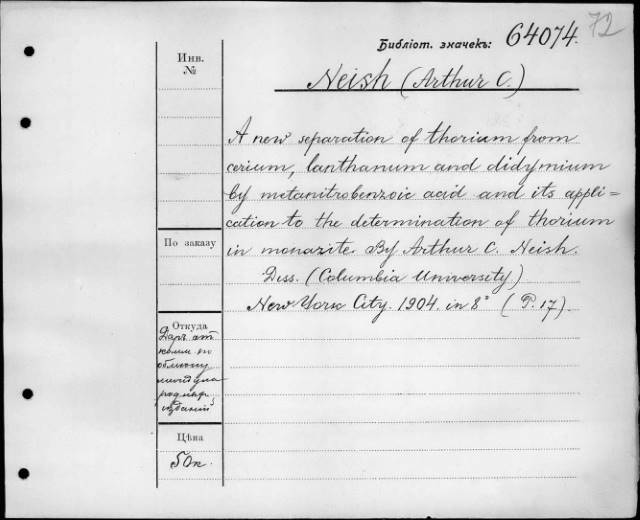 72
Библіот. значекъ: 64074.
Инв.
№
Neish (Arthur C.)
A new separation of thorium from
cerium, lanthanum and didymium
by metanitrobenzoic acid and its appli=
cation to the determination of thorium
in monazite. By Arthur C. Neish.
Diss. (Columbia University)
New York City. 1904. in 8° (P. 17).
По заказу
Откуда
Даръ от
комм. по
обмѣну
между на
роднар.
изданій
Цѣна
50к.